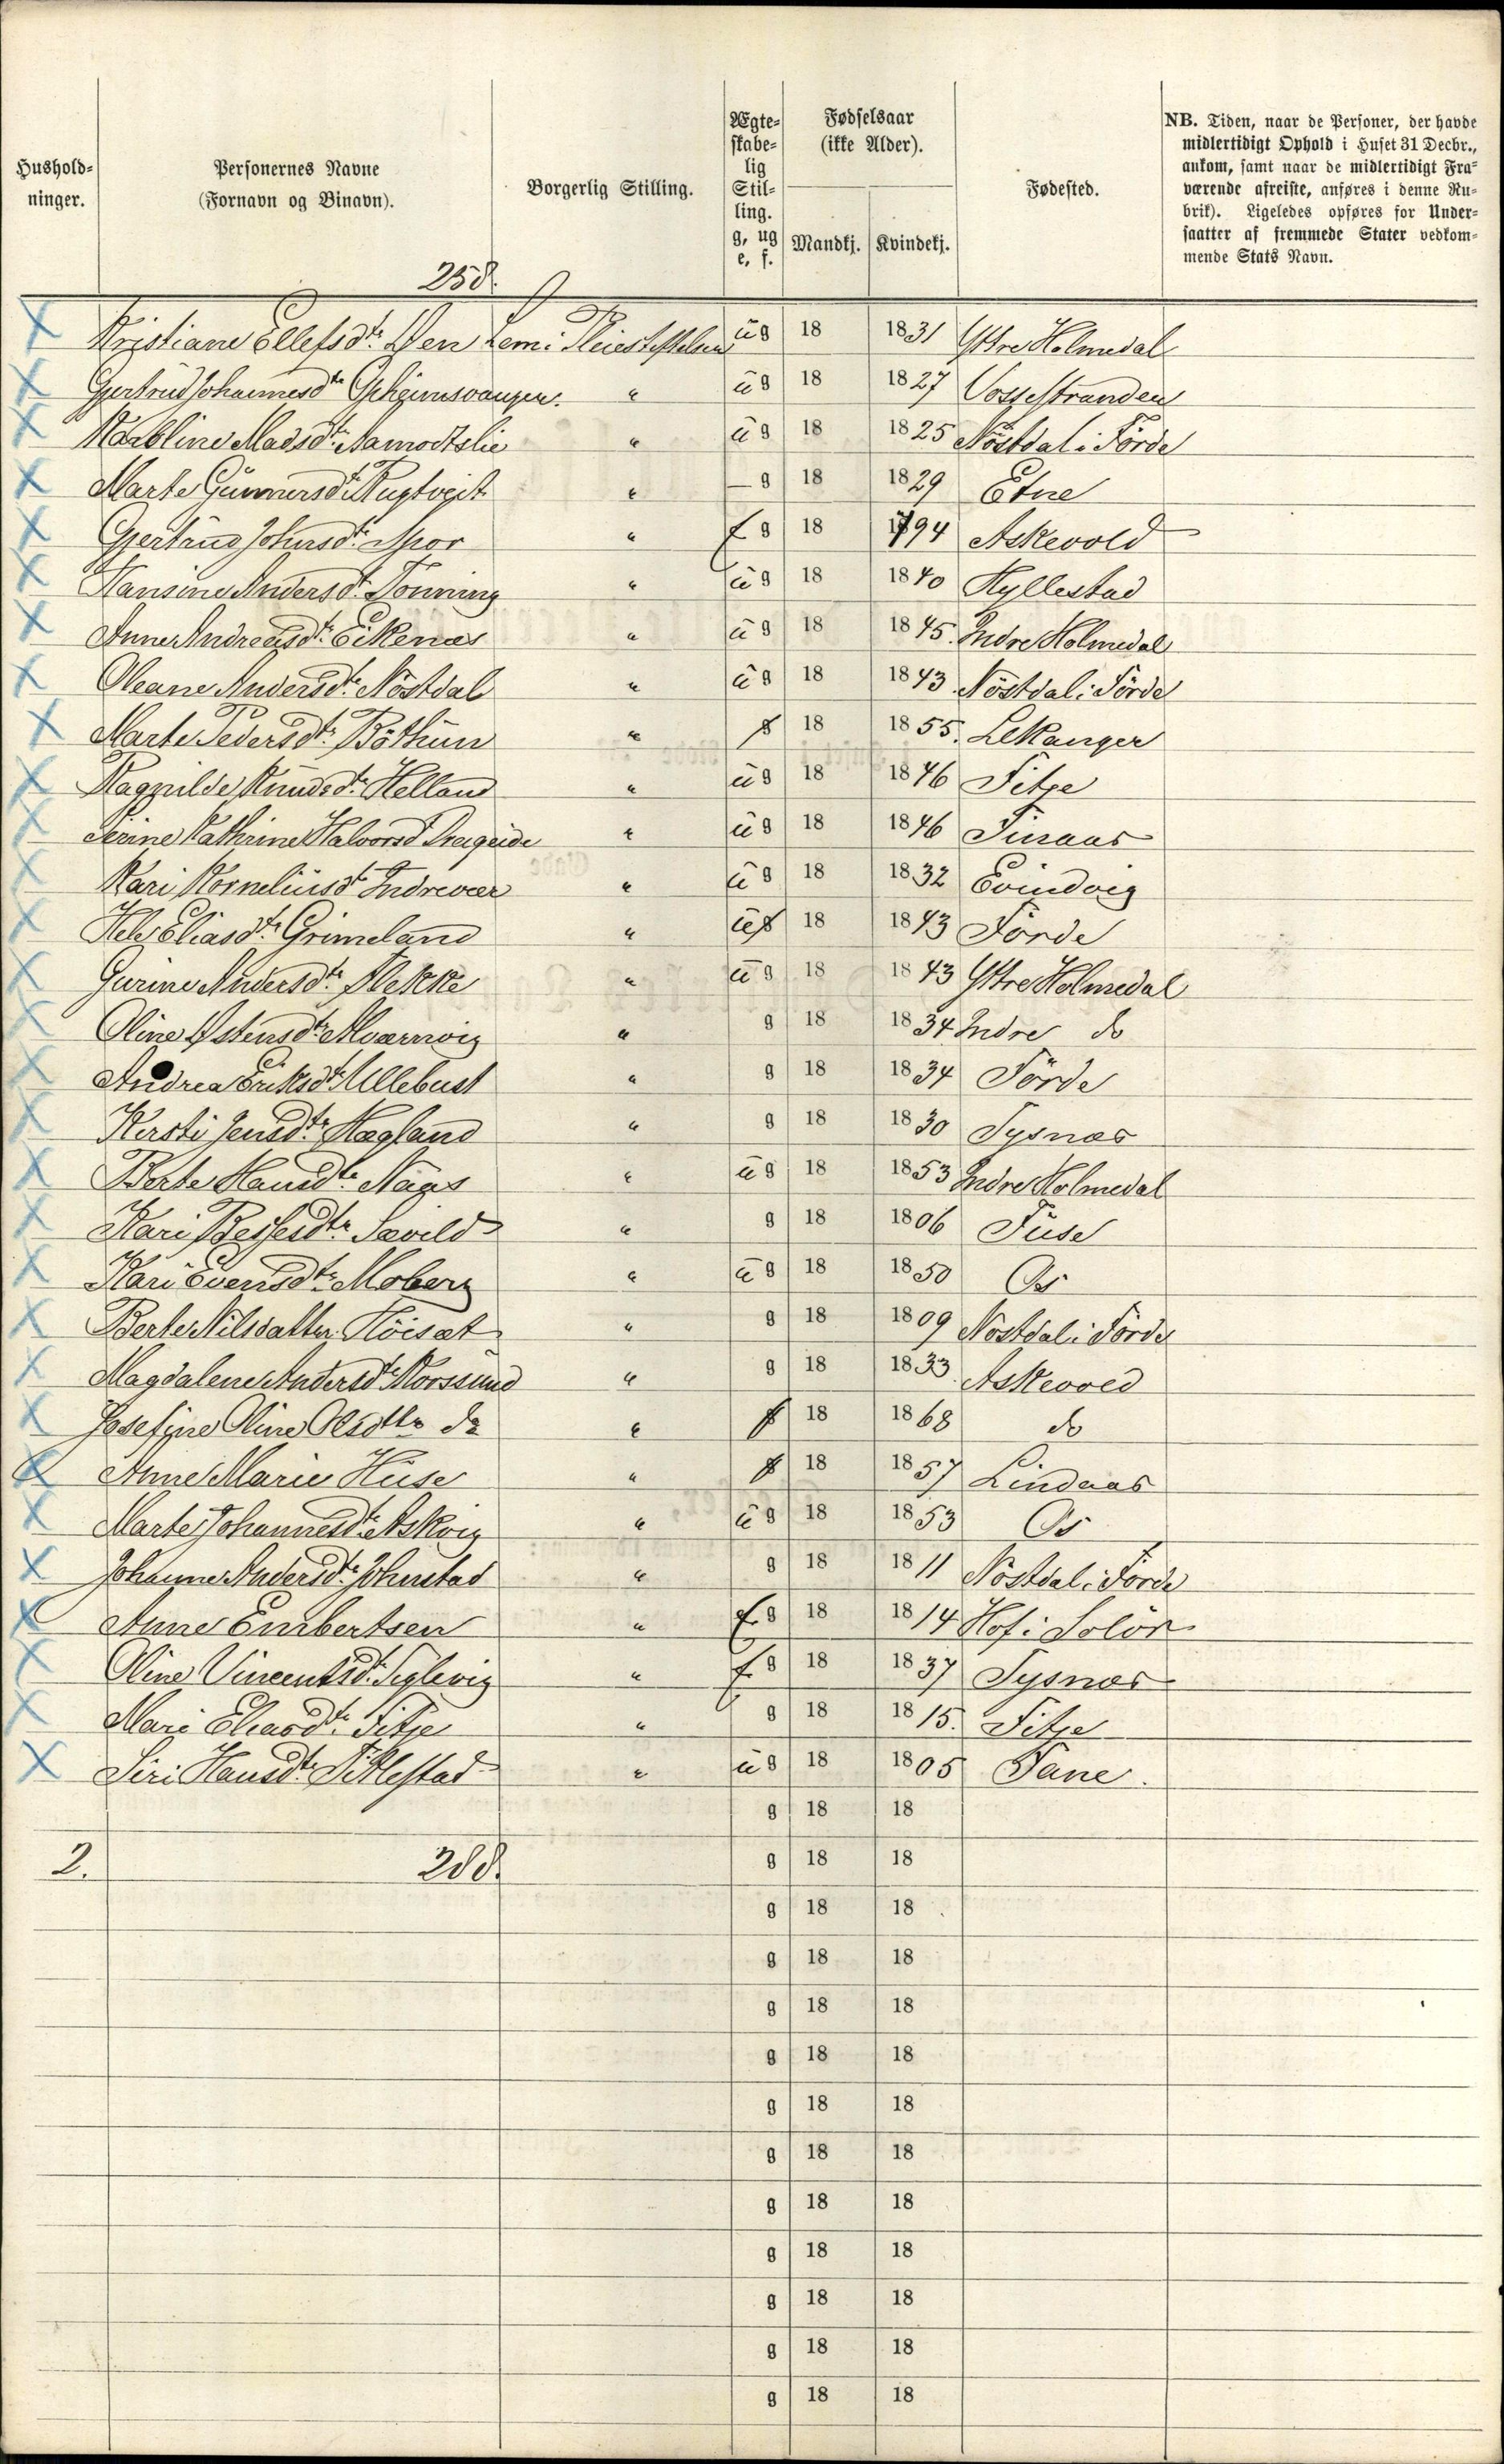 Hushold-
ninger.
Personernes Navne
(Fornavn og Binavn).
Borgerlig Stilling.
Ægte-
skabe-
lig
Stil-
ling.
g, ug
e, f.
Fødselsaar
(ikke Alder).
Mandkj. Kvindekj.
Fødested.
NB. Tiden, naar de Personer, der havde
midlertidigt Ophold i Huset 31 Decbr.,
ankom, samt naar de midlertidigt Fra-
værende afreiste, anføres i denne Ru-
brik). Ligeledes opføres for Under-
saatter af fremmede Stater vedkom-
mende Stats Navn.
258.
X Kristiane Ellefsdtr. Lem i Pleiestiftelsen ug 18 1831 Yttre Holmedal
X Gjertrud Johannesdtr " ug 18 1827 Vossestranden
X Madsdtr. Aamodtslie " ug 18 1825 Nöstdal i Förde
X Marte Gunnarsdtr. Rugtveit " g 18 1829 Etne
X Gjertrud Johnsdtr. " f g 18 1794 Askevold
X Hansine Andersdtr. Tonning " ug 18 1840 Hyllestad
X Anne Andreasdtr. Eikenæs " ug 18 1845. Indre Holmedal
X Oleane Andersdtr. Nöstdal " ug 18 1843 Nöstdal i Förde
X Marte Pedersdtr. Böthun " g 18 1855. Lekanger
X Ragnilde Knudsdtr. Helland " ug 18 1846 Fitje
X Serine Kathrine Halvorsd Drageide " ug 18 1846 Finaas
X Kari Korneliusdtr Indrevær " ug 18 1832 Evindvig
X Hele Eliasdtr. Grimeland " ug 18 1843 Förde
X Gurine Andersdtr. Flekke " ug 18 1843 Yttre Holmedal
X Oline Østensdtr. Kværnvig " g 18 1834 Indre do
X Andrea Eriksdtr. Ullebust " g 18 1834 Förde
X Kersti Jensdtr. Hægland " g 18 1830 Tysnæs
X Berte Hansdtr. " ug 18 1853 Indre Holmedal
X Kari Sævild " g 18 1806 Fuse
X Kari Evensdtr. Moberg " ug 18 1850 Os
X Berte Nilsdatter Höisæt " g 18 1809 Nöstdal i Förde
X Magdalene Andersdtr. Korssund " g 18 1833 Askevold
X Josefine Oline Olsdtr do " g 18 1868 do
X Anne Marie Huse " g 18 1857 Lindaas
X Marte Johannesdtr. Askvig " ug 18 1853 Os
X Johanne Andersdtr. Johnstad " g 18 1811 Nöstdal i Förde
X Anne Embertsen " f g 18 1814 Hof i Solör
X Oline Vincentsdtr. Teglevig " f g 18 1837 Tysnæs
X Mari Eliasdtr. Fitje " g 18 1815. Fitje
X Siri Hansdtr. Titlestad " ug 18 1805 Fane.
g 18 18
2. 288. g 18 18
g 18 18
g 18 18
g 18 18
g 18 18
g 18 18
g 18 18
g 18 18
g 18 18
g 18 18
g 18 18
g 18 18